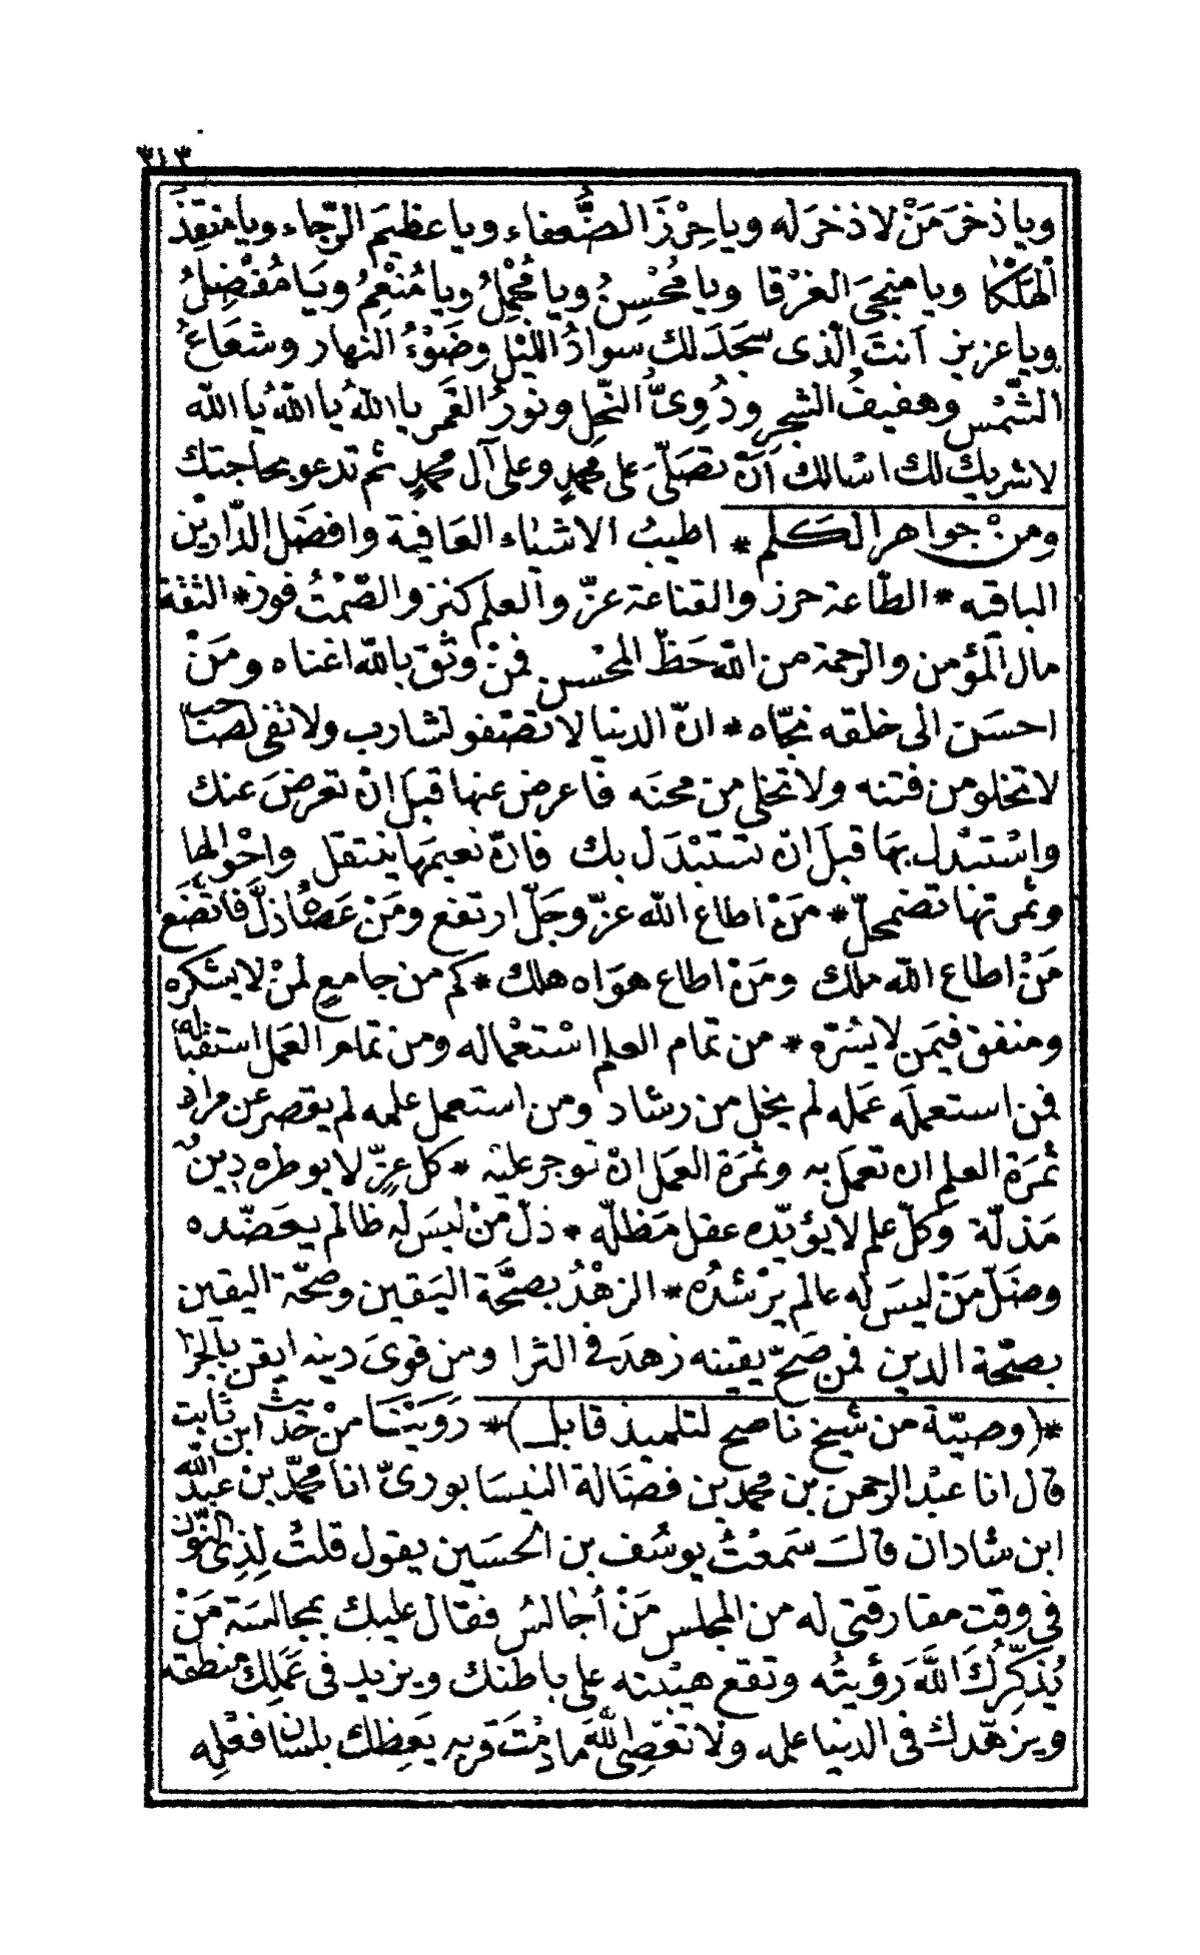 ٣١٣
وياذخرَ مَنْ لاذخرَ له وياحِرْزَ الضُّعفاء وياعظيمَ الرّجاء ويامنقِذَ
الهَلْكَا ويامنجىَ الغَرْقا ويامُحْسِنُ ويامُجْمِلُ ويامُنْعِمُ ويامُفْضِلُ
وياعزيز أنتَ الّذى سجَدَ لك سوادُ اللّيْل وضَوْءُ النهار وشعَاعُ
الشّمْس وهفيفُ الشجر ودُوِىُّ النّحل ونورُ القَمر يا اللهُ يا اللهُ يا الله
لاشريك لك اسْالك أنْ تصَلّىَ على محمدٍ وعلى آل محمدٍ ثم تدعو بحاجتك
ومنْ جواهر الكلم * اطيبُ الاشياء العافية وافضل الدّارين
الباقيه * الطّاعة حرز والقناعة عزّ والعلم كنز والصّمْتُ فوز * الثقة
مال المؤمن والرحمة من الله حَظّ المحْسن فمنْ وثق بالله اغناه ومَنْ
احسَن الى خلقه نجّاه * انّ الدنيا لا تصْفو لشارب ولا تفى لصاحب
لا تخلو من فتنه ولا تخلى من محنَه فاعرض عنها قبلَ انْ تعرضَ عنك
واسْتبْدل بهَا قبلَ انْ تسْتبْدَل بك فانّ نعيمَها ينتقل واحْوالها
وثمرتها تضمحلّ * مَنْ اطاع الله عزّ وجَلّ ارتفع ومَنْ عَصَاهُ ذلّ فاتضَع
مَنْ اطاع الله ملك ومَنْ اطاع هوَاه هلك * كم من جامعٍ لمنْ لا يشكره
ومنفق فيمَن لا يسُرّه * من تمام العلم اسْتعْماله ومن تمام العمَل استقبَاله
فمن استعملَه عَمله لم يخل من رشاد ومن استعمل علمه لم يقصر عن مراد
ثمرَة العلم ان تعمل به وثمَرَة العمَل انْ توجر عليْه * كل عِزٍّ لا يوطره دِينٌ
مَذلّة وكلّ علم لا يؤيّده عقل مَظلّه * ذلّ مَنْ ليسَ له ظالم يعَضّده
وضَلّ مَنْ ليسَ له عالم يرْشدُه * الزهْدُ بصحَّة اليَقين وصحّة اليقين
بصحّة الدين فمن صَحّ يقينه زهدَ فى الثرا ومن قوىَ دينه ايقن بالجزا
*(وصيّة من شيخ ناصح لتلميذ قابل)* رَوَيْنَا منْ حديث ابن ثابت
قال انا عبْد الرحمن بن محمد بن فضالة النيسابورىّ انا محمّد بن عبْد الله
ابن شادان قال سَمعْتُ يوسُف بن الحسَين يقول قلتُ لِذِى النّون
فى وقت مفارقتى له من المجلس مَنْ أُجالسُ فقال عليك بمجالسَة مَنْ
يُذكِّرُكَ اللهَ رؤيتُه وتقع هيْبته على باطنك ويزيد فى عَمَلِك منطقه
ويزهّدك فى الدنيا عمله ولا تعْصِى اللهَ مادمْتَ قربه يَعِظك بلسَان فعْلِه